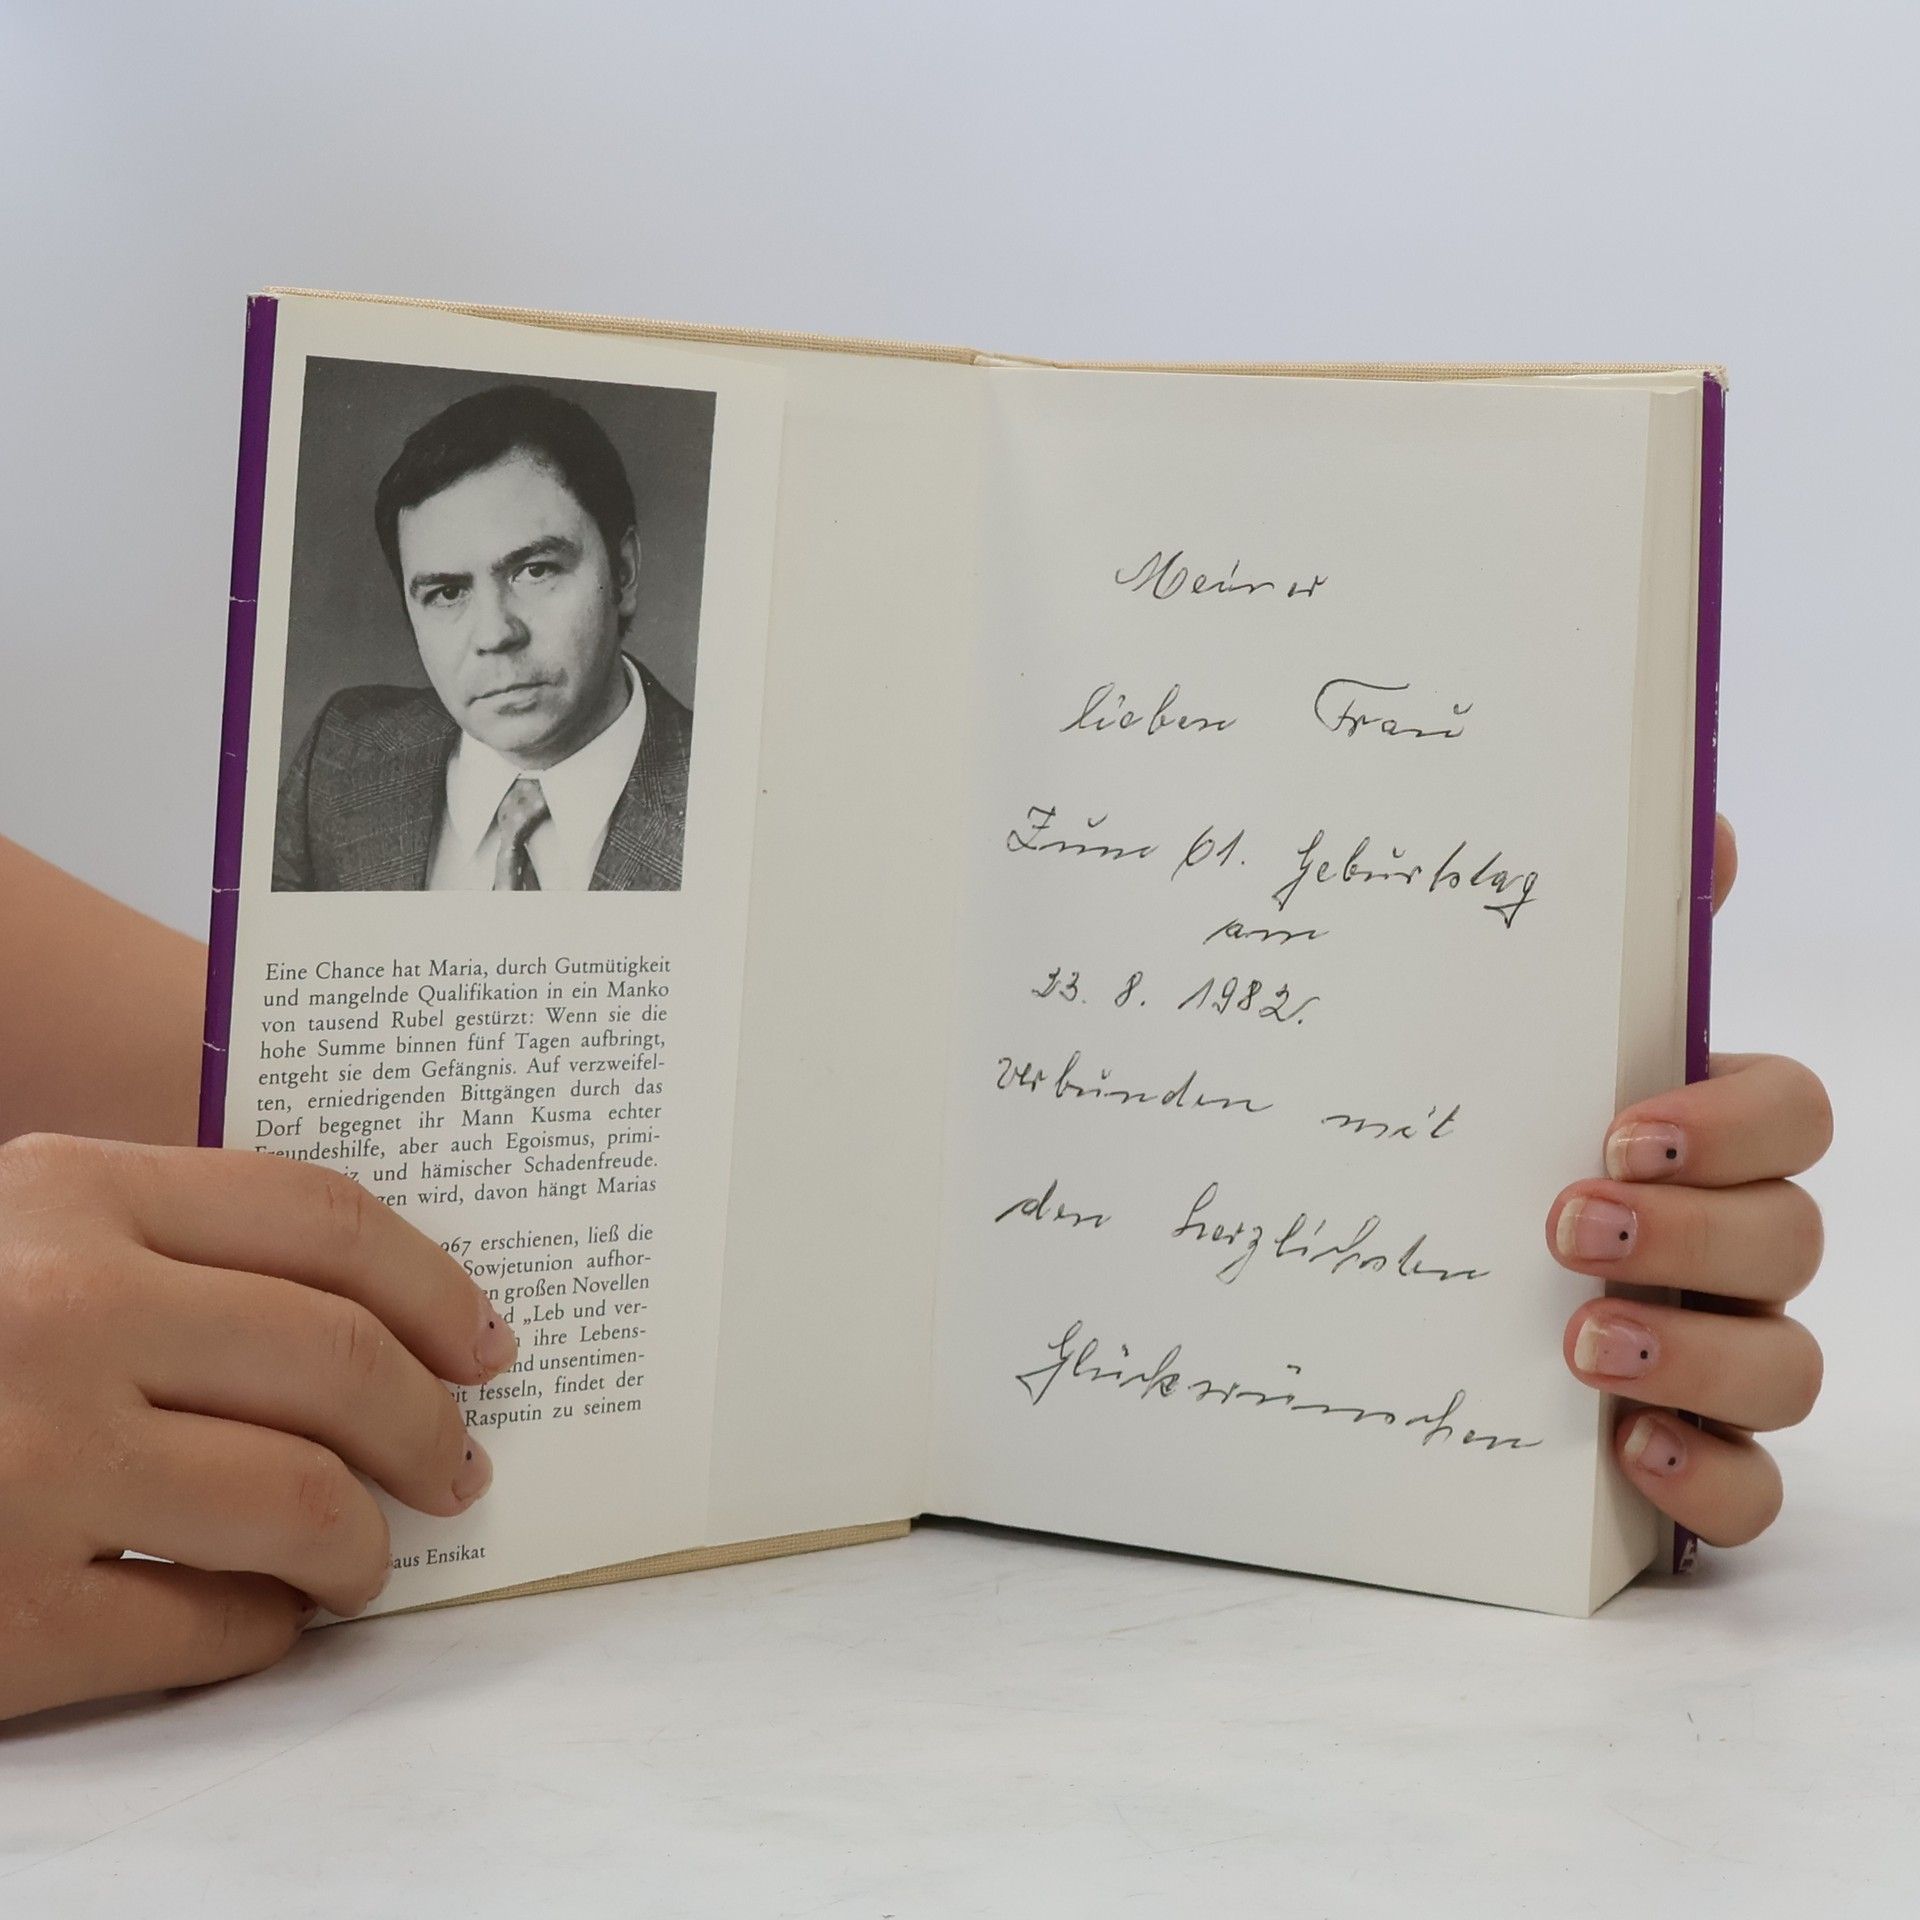 Eine Chance hat Maria, durch Gutmütigkeit
und mangelnde Qualifikation in ein Manko
von tausend Rubel gestürzt: Wenn sie die
hohe Summe binnen fünf Tagen aufbringt,
entgeht sie dem Gefängnis. Auf verzweifel-
ten, erniedrigenden Bittgängen durch das
Dorf begegnet ihr Mann Kusma echter
Freundeshilfe, aber auch Egoismus, primi-
und hämischer Schadenfreude.
wird, davon hängt Marias
erschienen, ließ die
Sowjetunion aufhor-
großen Novellen
„Leb und ver-
ihre Lebens-
und unsentimen-
fesseln, findet der
Rasputin zu seinem
Ensikat
Meiner
lieben Frau
Zum 61. Geburtstag
am
23. 8. 1982.
verbunden mit
den herzlichsten
Glückwünschen